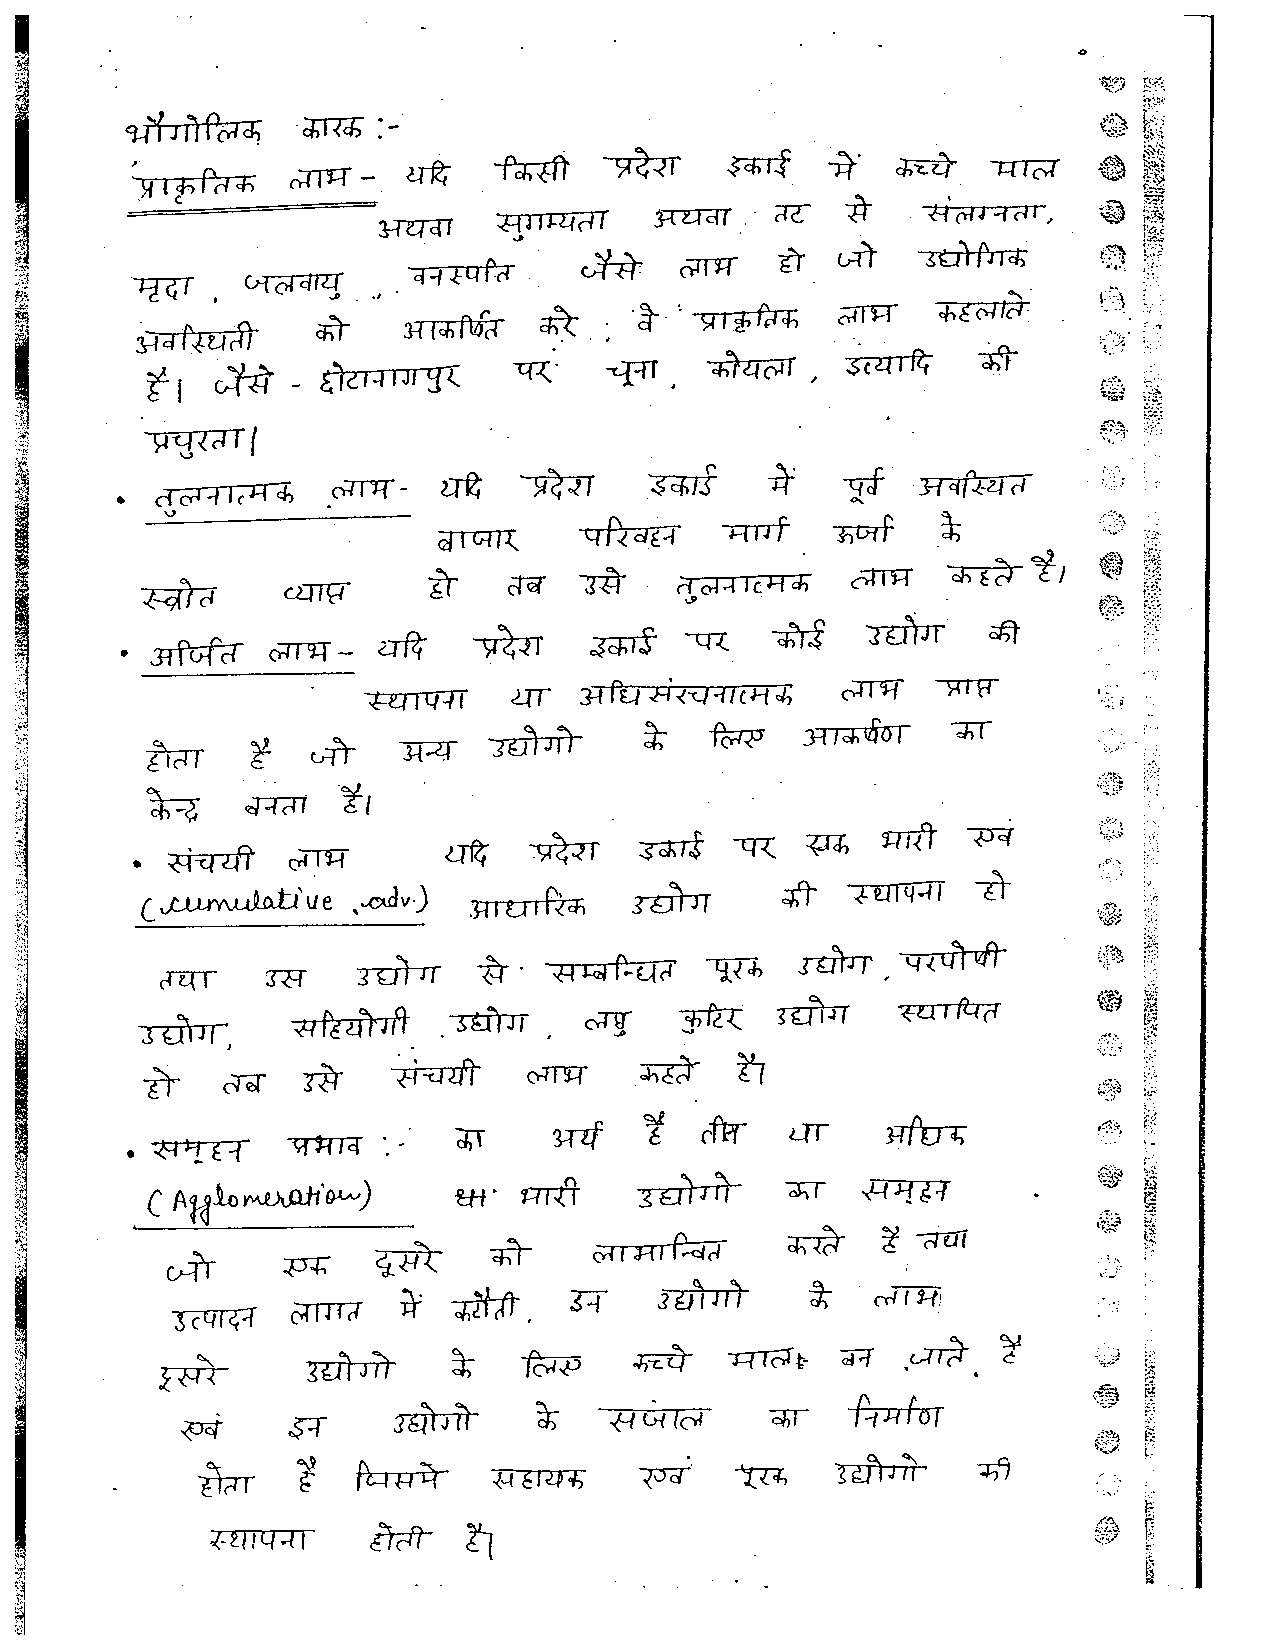 भौगोलिक कारक :-
प्राकृतिक लाभ - यदि किसी प्रदेश इकाई में कच्चे माल
अथवा सुगम्यता अथवा तट से संलग्नता,
मृदा, जलवायु, वनस्पति जैसे लाभ हो जो उद्योगिक
अवस्थिती को आकर्षित करे, वे प्राकृतिक लाभ कहलाते
है। जैसे - छोटानागपुर पर चूना, कोयला, इत्यादि की
प्रचुरता।
• तुलनात्मक लाभ - यदि प्रदेश इकाई में पूर्व अवस्थित
बाजार परिवहन मार्ग ऊर्जा के
स्त्रोत व्याप्त हो तब उसे तुलनात्मक लाभ कहते है।
• अर्जित लाभ - यदि प्रदेश इकाई पर कोई उद्योग की
स्थापना या अधिसंरचनात्मक लाभ प्राप्त
होता है जो अन्य उद्योगो के लिए आकर्षण का
केन्द्र बनता है।
• संचयी लाभ यदि प्रदेश इकाई पर एक भारी एवं
(cumulative adv.) आधारिक उद्योग की स्थापना हो
तथा उस उद्योग से सम्बन्धित पूरक उद्योग, परपोषी
उद्योग, सहियोगी उद्योग, लघु कुटिर उद्योग स्थापित
हो तब उसे संचयी लाभ कहते है।
• समूहन प्रभाव :- का अर्थ है तीन या अधिक
(Agglomeration) भारी उद्योगो का समूहन
जो एक दूसरे को लाभान्वित करते है तथा
उत्पादन लागत में कटौती, उन उद्योगो के लाभ
दूसरे उद्योगो के लिए कच्चे माल बन जाते है
एवं इन उद्योगो के संजाल का निर्माण
होता है जिसमे सहायक एवं पूरक उद्योगो की
स्थापना होती है।